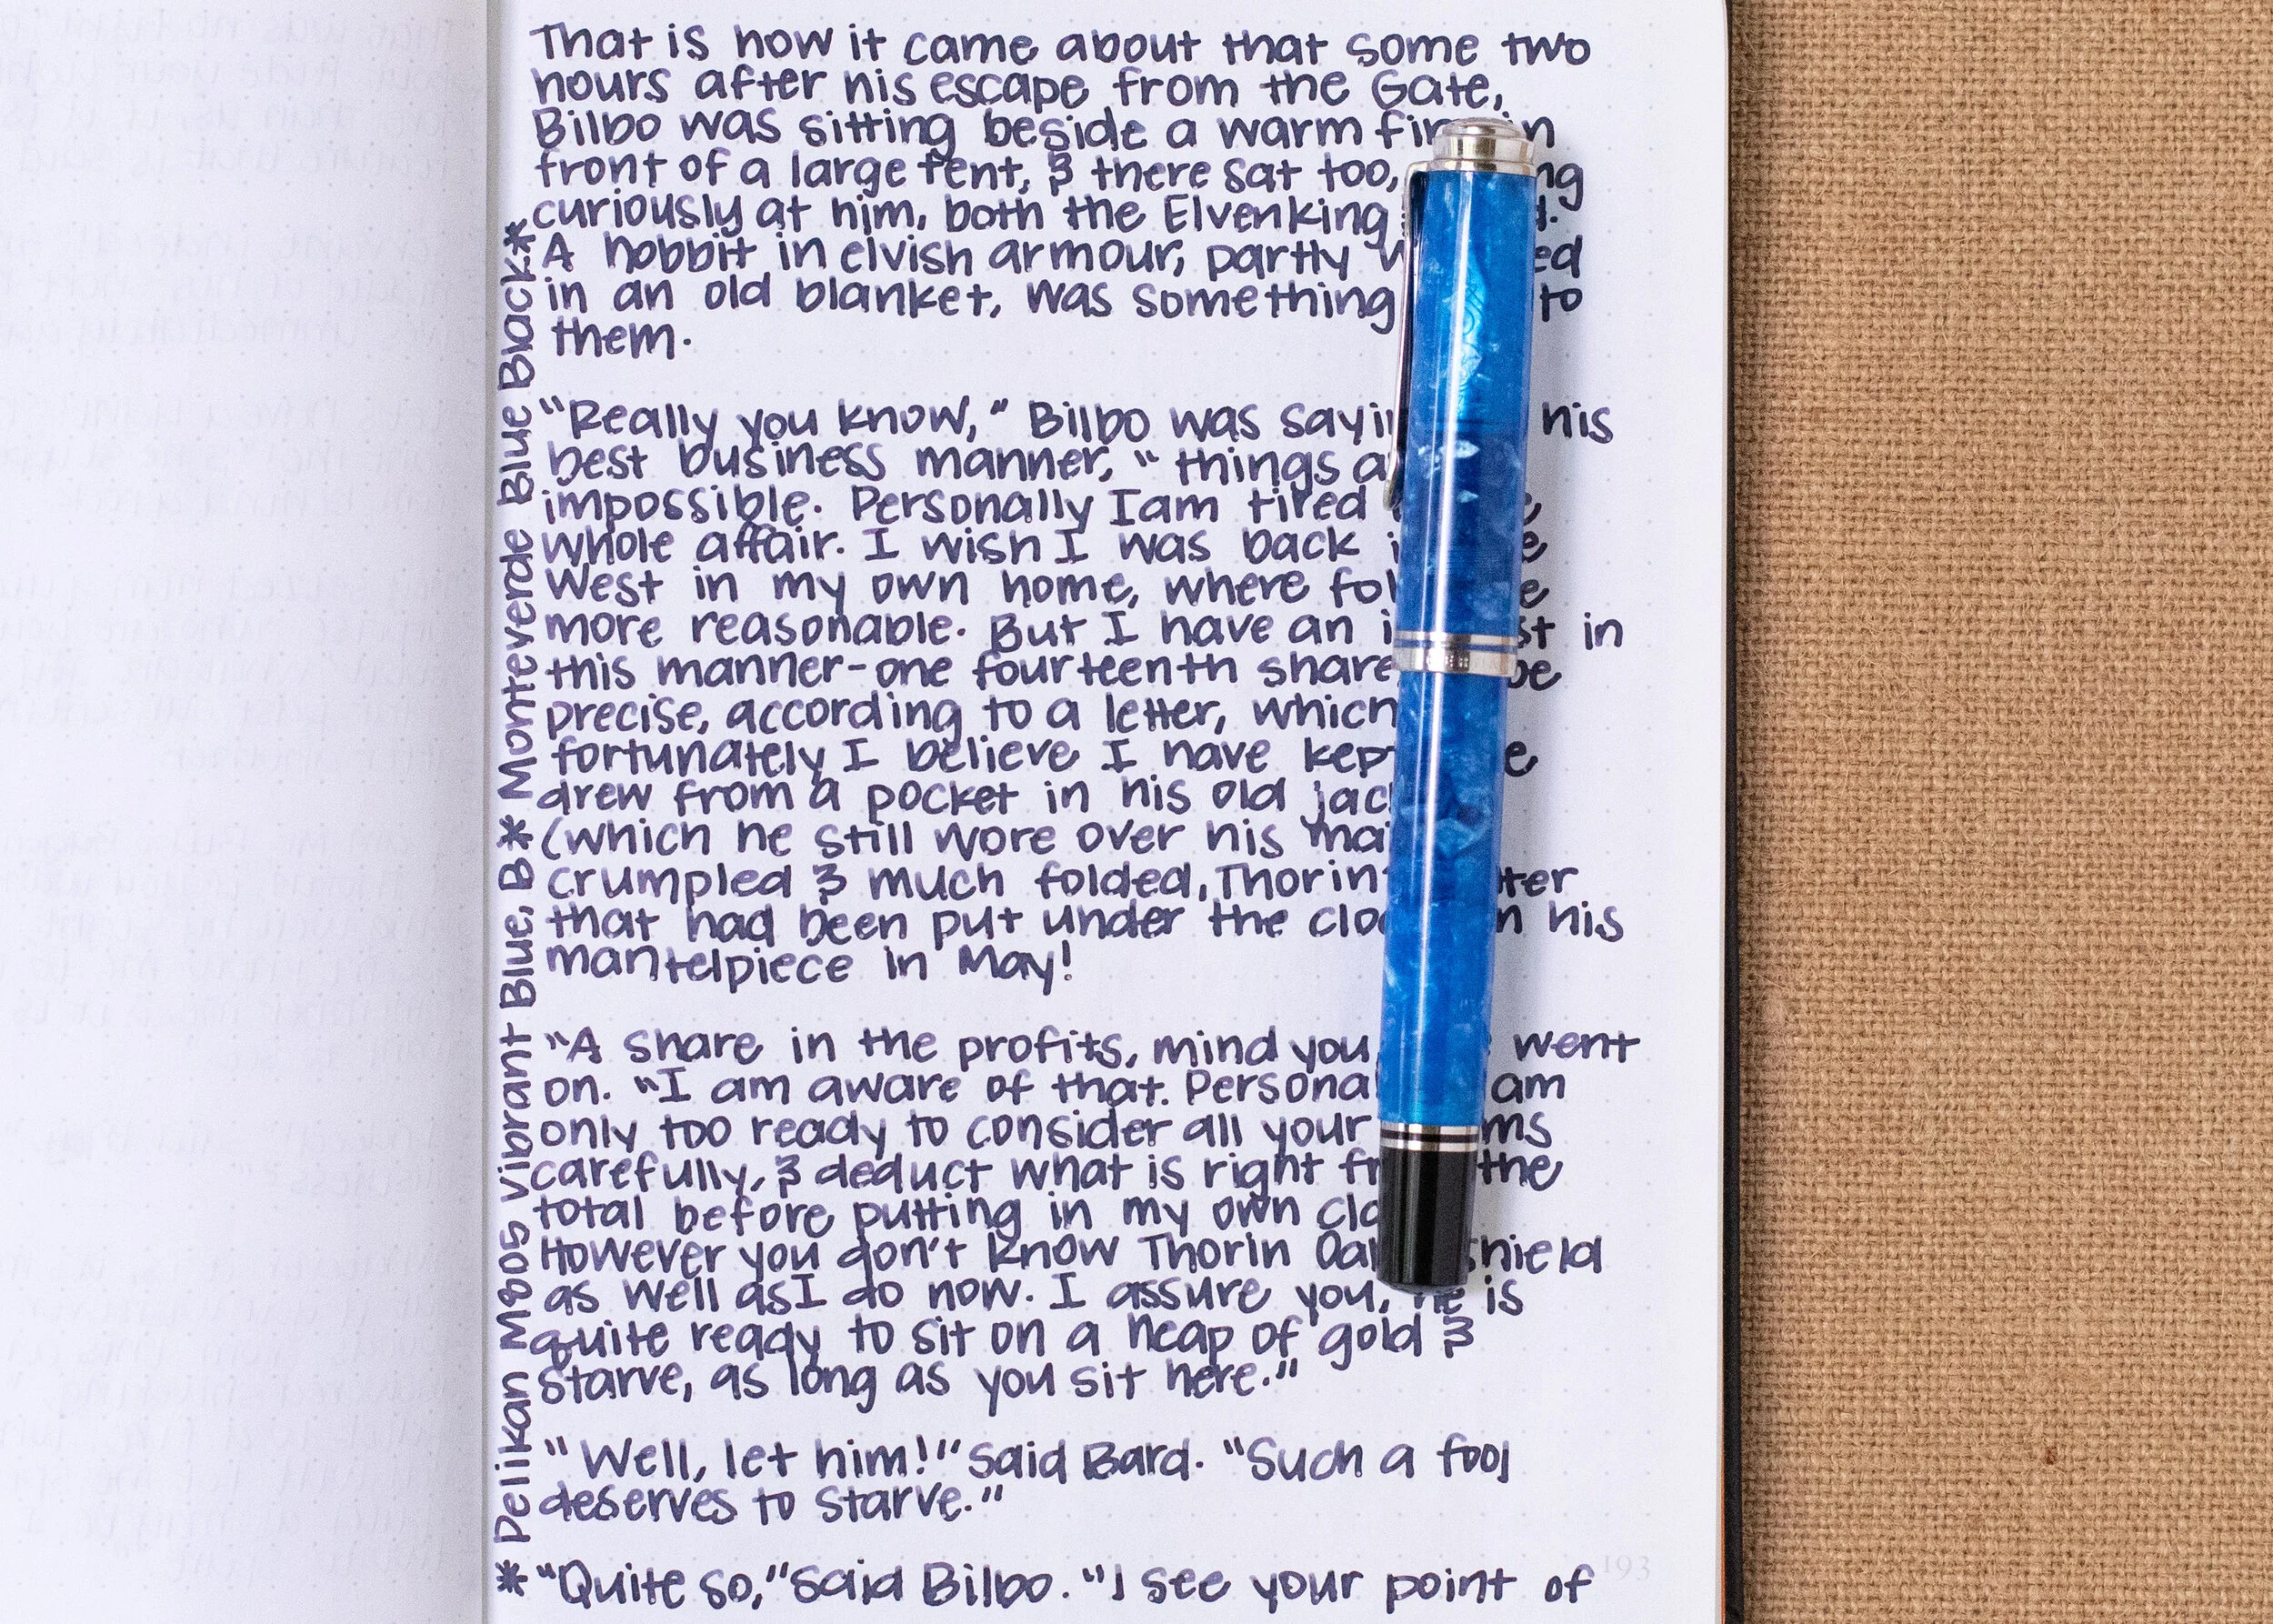 That is how it came about that some two
hours after his escape from the Gate,
Bilbo was sitting beside a warm fire in
front of a large tent, & there sat too,
curiously at him, both the Elvenking
A hobbit in elvish armour, partly
in an old blanket, was something to
them.
"Really you know," Bilbo was saying his
best business manner, "things
impossible. Personally I am tired
whole affair. I wish I was back
West in my own home, where
more reasonable. But I have an in
this manner-one fourteenth share, be
precise, according to a letter, which
fortunately I believe I have kept
drew from a pocket in his old
(which he still wore over his
crumpled & much folded, Thorin's letter
that had been put under the clock on his
mantelpiece in May!
"A share in the profits, mind you, went
on. "I am aware of that. Personally am
only too ready to consider all your
carefully, & deduct what is right from the
total before putting in my own
However you don't know Thorin Oakenshield
as well as I do now. I assure you, he is
quite ready to sit on a heap of gold &
starve, as long as you sit here."
"Well, let him!" said Bard. "Such a fool
deserves to starve."
"Quite so," said Bilbo. "I see your point of
* Pelikan M805 Vibrant Blue, B * Monteverde Blue Black *
193